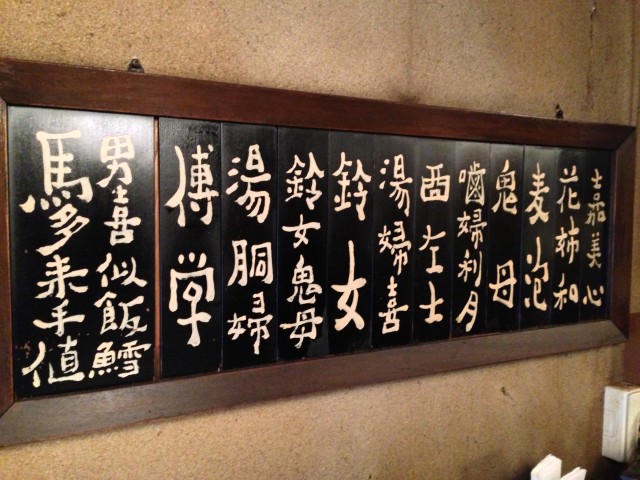 嘉美心
花姉和
麦泡
鬼母
嚙婦利月
酉左士
湯婦喜
鈴女
鈴女鬼母
湯胴婦
傳学
男喜似飯鱈
馬多来手値